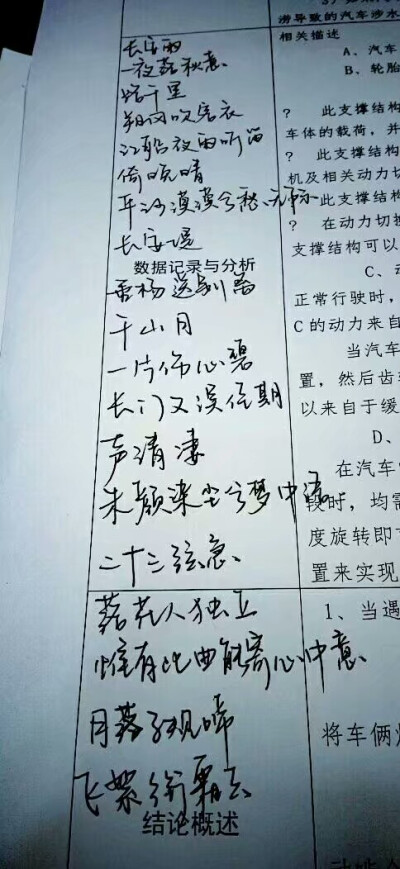 3、
涝导致的汽车涉水
相关描述
A、汽车
B、轮胎
? 此支撑结构
车体的载荷，并
? 此支撑结构
机及相关动力切
此支撑结构
? 在动力切换
支撑结构可以
C、动
正常行驶时，
C的动力来自
当汽车
置，然后齿
以来自于缓
D、
在汽车
段时，均需
度旋转即
置来实现
1、当遇
将车俩
长安雨
一夜落秋意
路千里
朔风吹客衣
江船夜雨听笛
倚晚晴
平沙漠漠兮愁无际
长安堤
数据记录与分析
垂杨送别路
千山月
一片伤心碧
长门又误佳期
声清凄
朱颜染尘兮梦中语
二十三弦急
落花人独立
惟有此曲能寄心中意
月落子规啼
飞絮兮
结论概述